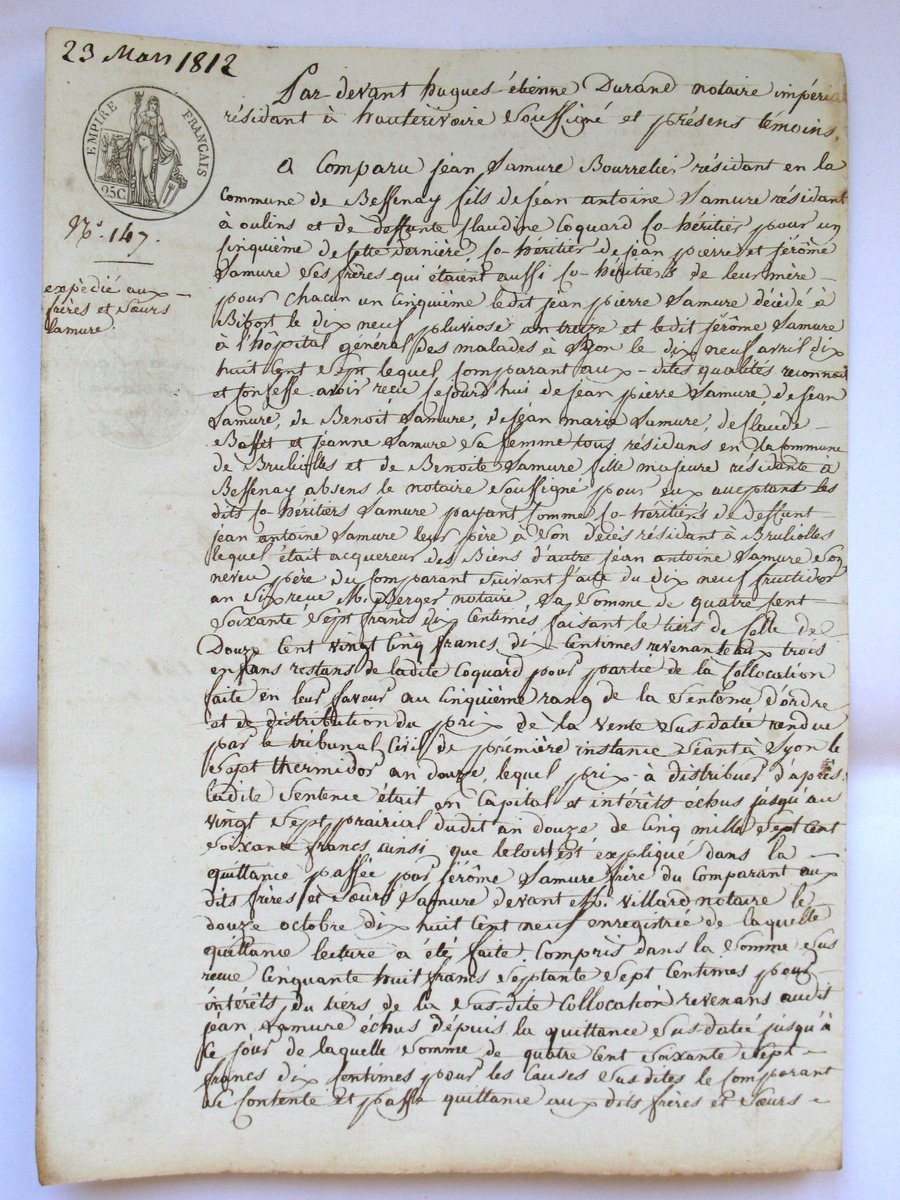 23 Mars 1812
EMPIRE FRANÇAIS
25C.
N.º 147.
expédié aux
frères et sœurs
Lamure.
Par-devant hugues-étienne Durand notaire impérial
résidant à hauterivoire soussigné et présens témoins.
a Comparu jean Lamure Bourrelier résidant en la
Commune de Bessenay fils de jean antoine Lamure résidant
à oulins et de deffunte Claudine Coquard Co-héritier pour un
Cinquième de Cette dernière, Co-héritier de jean pierre et jérôme
Lamure ses frères qui étaient aussi Co-héritiers de leur mère
pour chacun un Cinquième ledit jean pierre Lamure décédé à
le dix neuf pluviose an treize et ledit jérôme Lamure
à l'hôpital général des malades à Lyon le dix neuf avril dix
huit Cent Sept lequel Comparant aux-dites qualités reconnoit
et Confesse avoir reçu Cejourd'hui de jean pierre Lamure, de jean
Lamure, de Benoît Lamure, de jean marie Lamure, de Claude
Basset et jeanne Lamure sa femme tous résidans en la Commune
de Bruliolles et de Benoite Lamure fille majeure résidante à
Bessenay absens le notaire soussigné pour eux acceptant les
dits Co-héritiers Lamure payant Comme Co-héritiers de deffunt
jean antoine Lamure leur père à son décès résidant à Bruliolles
lequel était acquereur des Biens d'autre jean antoine Lamure son
neveu père du Comparant suivant l'acte du dix neuf fructidor
an Six reçu M.e Berger notaire la Somme de quatre Cent
Soixante Sept francs dix Centimes faisant le tiers de Celle de
Douze Cent vingt Cinq francs dix Centimes revenante aux trois
enfans restans de ladite Coquard pour partie de la Collocation
faite en leur faveur au Cinquième rang de la Sentence d'ordre
et de distribution du prix de la vente Sus-datée rendue
par le tribunal Civil de première instance Séant à Lyon le
Sept thermidor an douze, lequel prix à distribuer d'après
ladite Sentence était en Capital et intérêts échus jusqu'au
vingt Sept prairial dudit an douze de Cinq mille Sept Cent
Soixante francs ainsi que le tout est expliqué dans la
quittance passée par jérôme Lamure frère du Comparant aux
dits frères et sœurs Lamure devant M.e Villard notaire le
douze octobre dix huit Cent neuf enregistrée de laquelle
quittance lecture a été faite. Compris dans la Somme Sus
reçue Cinquante huit francs Septante Sept Centimes pour
intérêts du tiers de la Sus-dite Collocation revenans audit
jean Lamure échus depuis la quittance Sus-datée jusqu'à
Ce jour de laquelle Somme de quatre Cent Soixante Sept
francs dix Centimes pour les Causes Susdites le Comparant
Se Contente et passe quittance aux dits frères et Sœurs